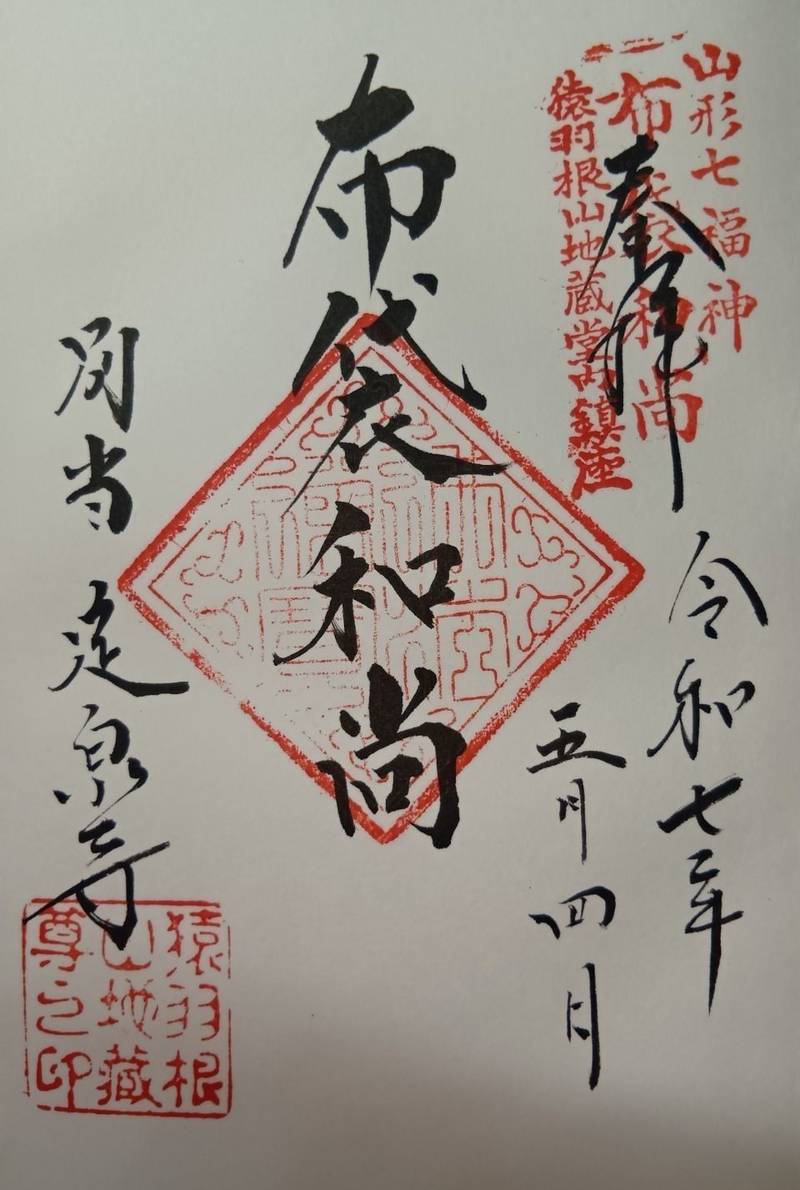 山形七福神
布袋和尚
猿羽根山地蔵堂内鎮座
奉拝
令和七年
五月四日
布袋和尚
別当 定泉寺
猿羽根
山地蔵
尊之印